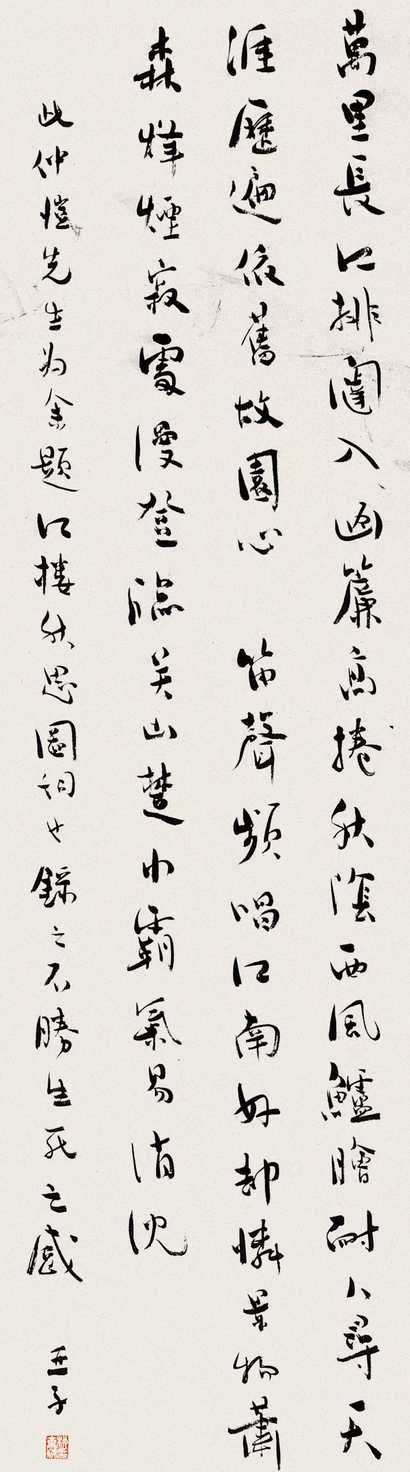 萬里長江排闥入畫簾高捲秋陰西風鱸膾耐人尋天
涯歷遍依舊故園心 笛聲頻唱江南好却憐景物蕭
森烽煙寂處漫登臨关山楚水霸氣易消沈
此仲愷先生为余題江樓秋思圖詞也錄之不勝生死之感
亚子